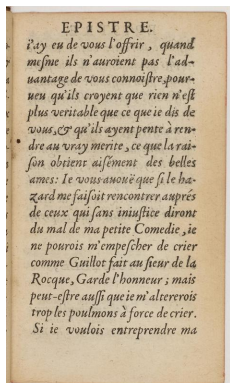 EPISTRE.
i'ay eu de vous l'offrir, quand
mesme ils n'auroient pas l'ad-
uantage de vous connoistre, pour-
ueu qu'ils croyent que rien n'est
plus veritable que ce que ie dis de
vous, & qu'ils ayent pente à ren-
dre au vray merite, ce que la rai-
son obtient aisément des belles
ames: Ie vous auouë que si le ha-
zard me faisoit rencontrer auprés
de ceux qui sans iniustice diront
du mal de ma petite Comedie, ie
ne pourois m'empescher de crier
comme Guillot fait au sieur de la
Rocque, Garde l'honneur; mais
peut-estre aussi que ie m'altererois
trop les poulmons à force de crier.
Si ie voulois entreprendre ma